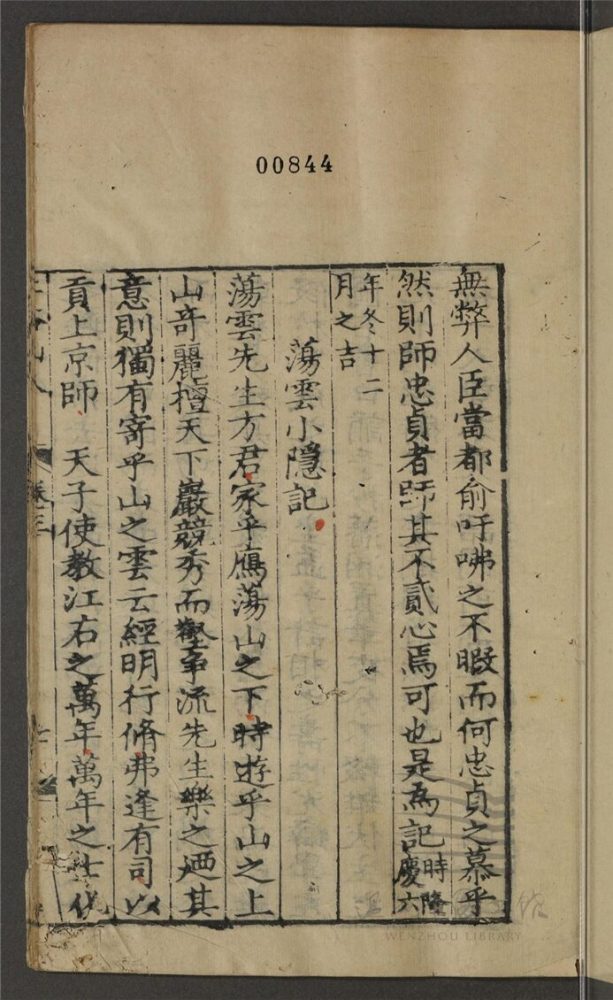 00844
無弊人臣當都俞吁咈之不暇而何忠貞之慕乎
然則師忠貞者師其不貳心焉可也是為記時隆慶六
年冬十二
月之吉
蕩雲小隱記
蕩雲先生方君家乎鴈蕩山之下時遊乎山之上
山奇麗擅天下巖競秀而壑爭流先生樂之迺其
意則獨有寄乎山之雲云經明行脩弗逢有司以
貢上京師 天子使教江右之萬年萬年之士
WENZHOU LIBRARY